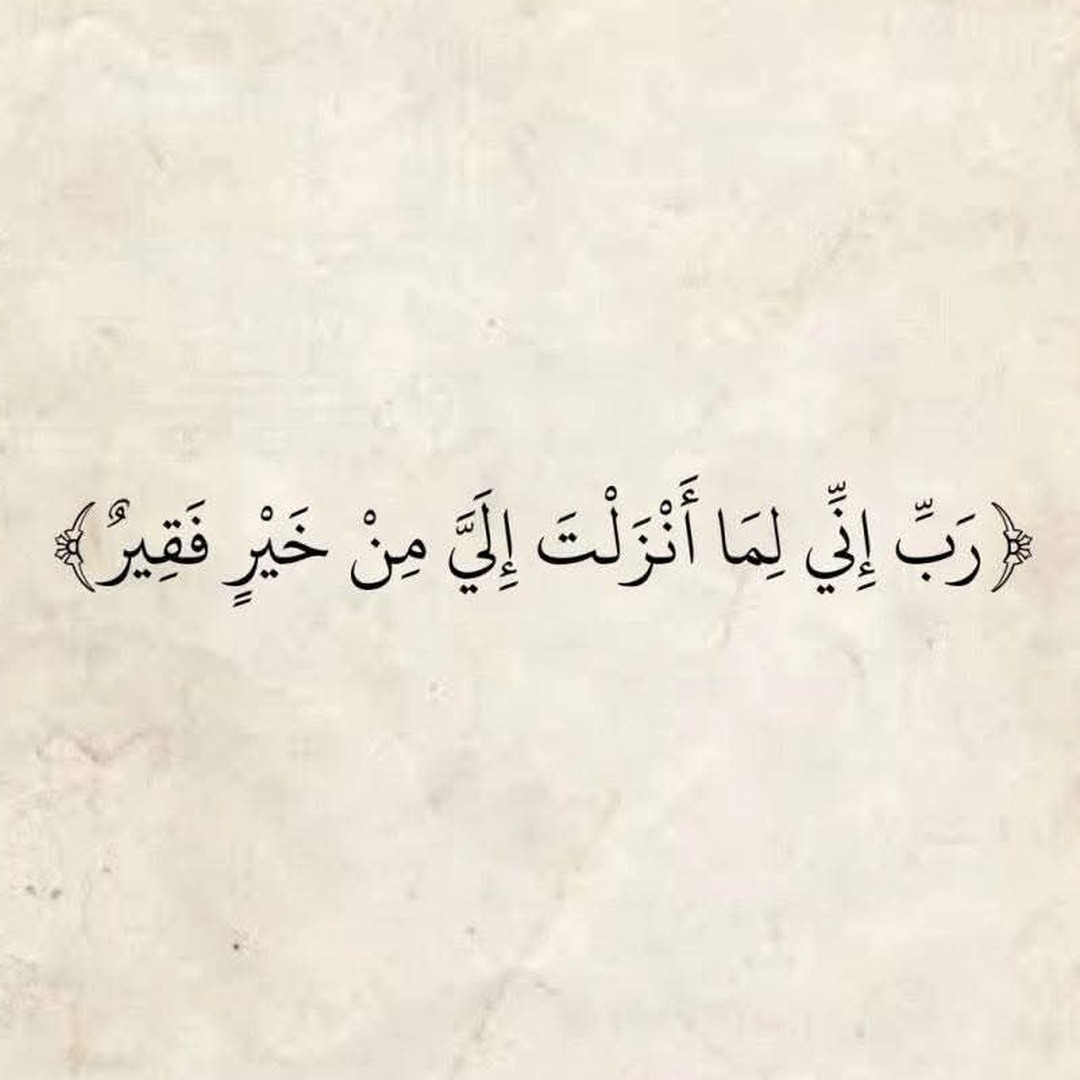 ﴿رَبِّ إِنِّي لِمَا أَنْزَلْتَ إِلَيَّ مِنْ خَيْرٍ فَقِيرٌ﴾